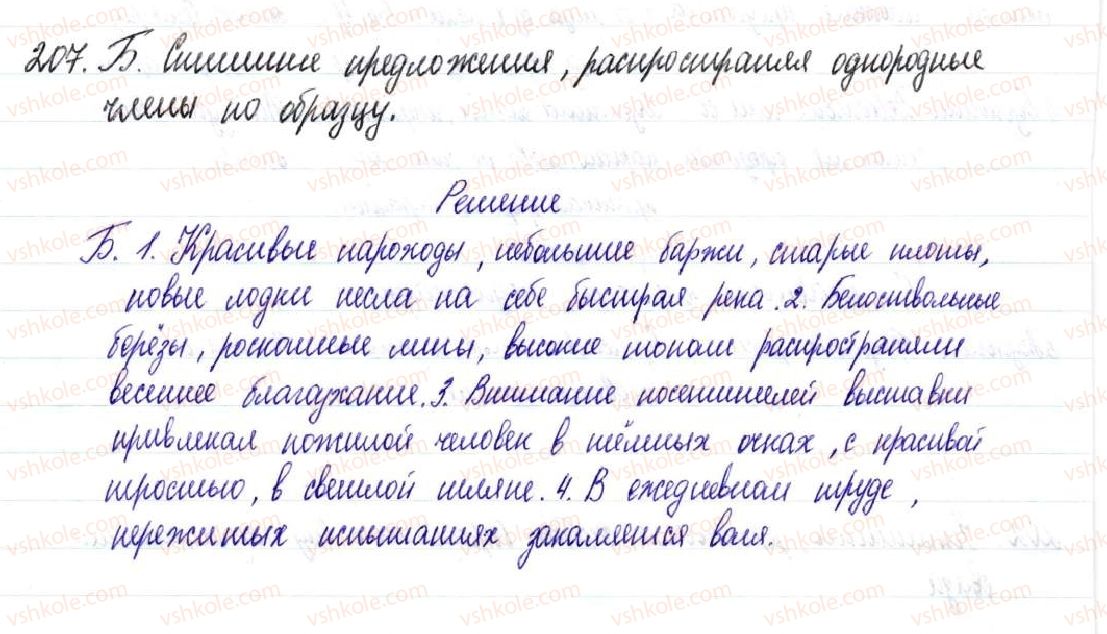 207. Б. Спишите предложения, распространяя однородные
члены по образцу.
Решение
Б. 1. Красивые пароходы, небольшие баржи, старые плоты,
новые лодки несла на себе быстрая река. 2. Белоствольные
берёзы, роскошные липы, высокие тополи распространяли
весеннее благаухание. 3. Внимание посетителей выставки
привлекал пожилой человек в тёмных очках, с красивой
тростью, в светлой шляпе. 4. В ежедневном труде,
пережитых испытаниях закаляется воля.